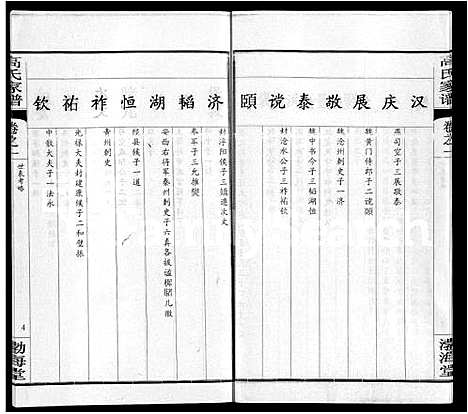 高氏家谱
卷之一
渤海堂
汉 庆 展 敬 泰 谠 颐
燕司空子三展敬泰
魏黄门侍郎子二谠颐
魏沧州刺史子一济
魏中书令子三韬湖恒
封沧水公子三祚祐钦
济 韬 湖 恒 祚 祐 钦
封浮阳侯子三
参军子三允推燮
安西右将军秦州刺史子六真各拔谧稚
陉县侯子一道
青州刺史
光禄大夫封建康侯子二和璧振
中散大夫子一法永
高氏家谱
卷之一
世系考略
4
渤海堂